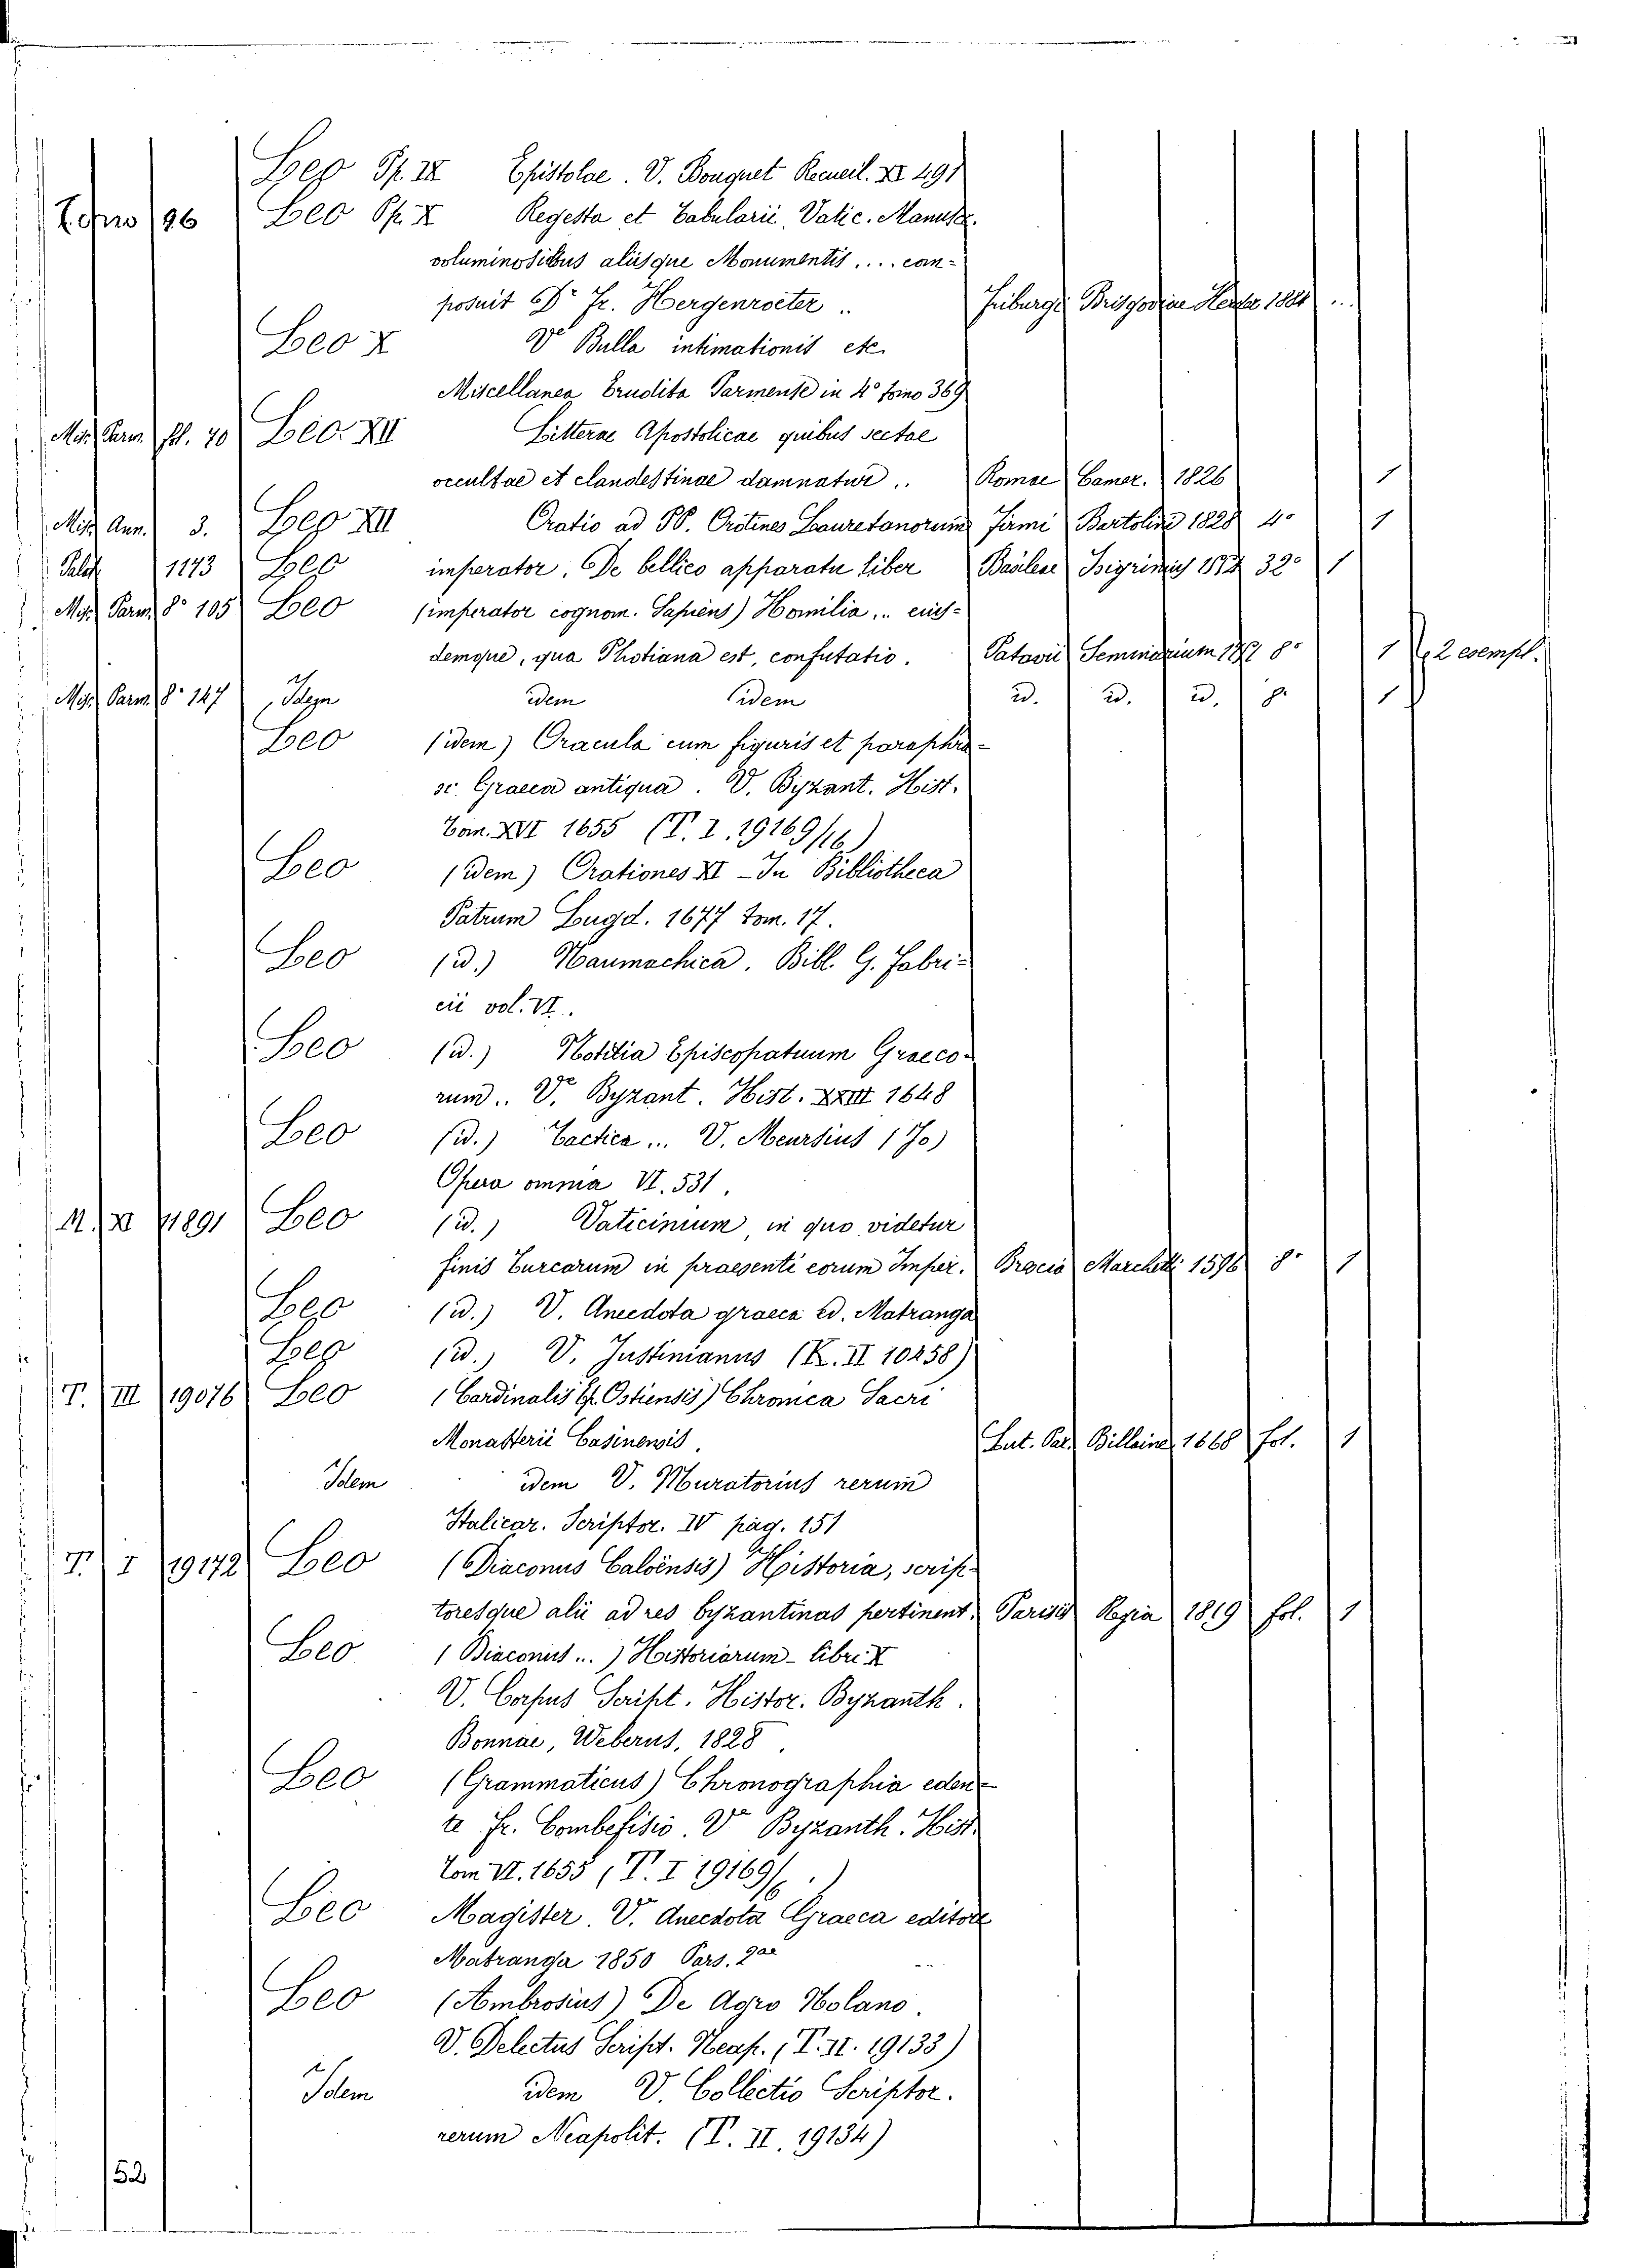 Leo Pp. IX Epistolae. V. Bouquet Recueil. XI 491
196 Leo Pp. X Regesta et Tabularii, Vatic. Manuscr.
voluminosibus aliisque Monumentis.... com-
posuit Dr Fr. Hergenroeter .. Friburgi Brisgoviae Herder 1884 ..
Leo X V. Bulla intimationis etc.
Miscellanea Erudita Parmense in 4º tomo 369
Mis. Parm. fol. 70 Leo. XII Litterae Apostolicae quibus sectae
occultae et clandestinae damnatur .. Romae Camer. 1826 1
Misc. Ann. 3. Leo XII Oratio ad PP. Lauretanorum Firmi Bartolini 1828 4º 1
Palat. 1173 Leo imperator, De bellico apparatu liber Basileae 32º 1
Misc. Parm. 8º 105 Leo (imperator cognom. Sapiens) Homilia .. eius-
demque, qua Photiana est, confutatio. Patavii Seminarium 8º 1 2 esempl.
Misc. Parm. 8º 147 Idem idem idem id. id. id. 8º 1
Leo (idem) Oracula cum figuris et paraphra-
se Graeca antiqua. V. Byzant. Hist.
Tom. XVI 1655 (T. I. 19169/16)
Leo (idem) Orationes XI - In Bibliotheca
Patrum Lugd. 1677 tom. 17.
Leo (id.) Naumachica. Bibl. G. Fabri-
cii vol. VI.
Leo (id.) Notitia Episcopatuum Graeco-
rum .. V. Byzant. Hist. XXIII 1648
Leo (id.) Tactica ... V. Meursius (Jo)
Opera omnia VI. 531.
M. XI 11891 Leo (id.) Vaticinium, in quo videtur
finis Turcarum in praesenti eorum Imper. Brescia Marchetti 1596 8º 1
Leo (id.) V. Anecdota graeca ed. Matranga
Leo (id.) V. Justinianus (K. II 10258)
T. III 19076 Leo (Cardinalis Ep. Ostiensis) Chronica Sacri
Monasterii Casinensis. Lut. Par. Billaine 1668 fol. 1
Idem idem V. Muratorius rerum
Italicar. Scriptor. IV pag. 151
T. I 19172 Leo (Diaconus Caloensis) Historia, scrip-
toresque alii ad res byzantinas pertinent. Parisiis Regia 1819 fol. 1
Leo (Diaconus ...) Historiarum - libri X
V. Corpus Script. Histor. Byzanth.
Bonnae, Weberus, 1828.
Leo (Grammaticus) Chronographia eden-
te Fr. Combefisio. V. Byzanth. Hist.
Tom VI. 1655 (T. I 19169/6.)
Leo Magister. V. Anecdota Graeca editore
Matranga 1850 Pars. 2ae
Leo (Ambrosius) De Agro Nolano.
V. Delectus Script. Neap. (T. II. 19133)
Idem idem V. Collectio Scriptor.
rerum Neapolit. (T. II. 19134)
52